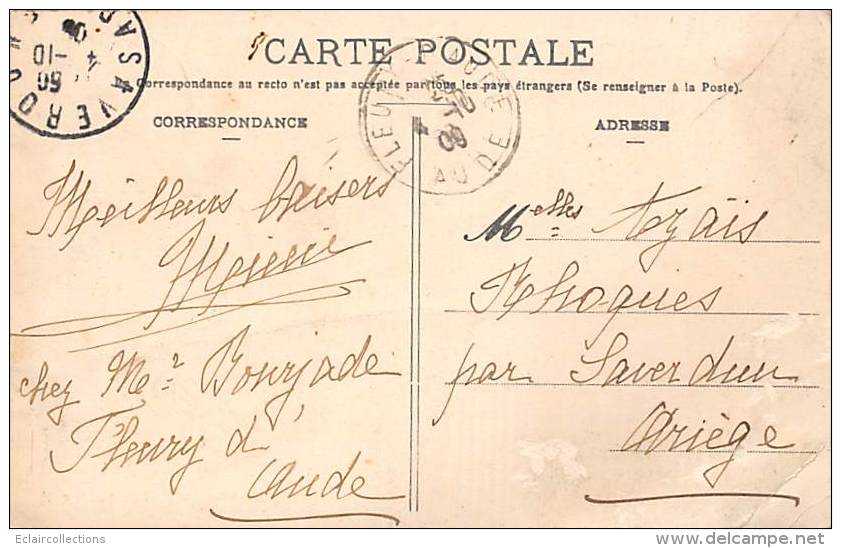 CARTE POSTALE
Correspondance au recto n'est pas acceptée par tous les pays étrangers (Se renseigner à la Poste).
CORRESPONDANCE
Meilleurs baisers
chez Mr Bourjade
Fleury d'
Aude
ADRESSE
Melles Azaïs
Rhoques
par Saverdun
Ariège
FLEURY AUDE
AUDE
SAVERDUN
Eclaircollections
delcampe.net